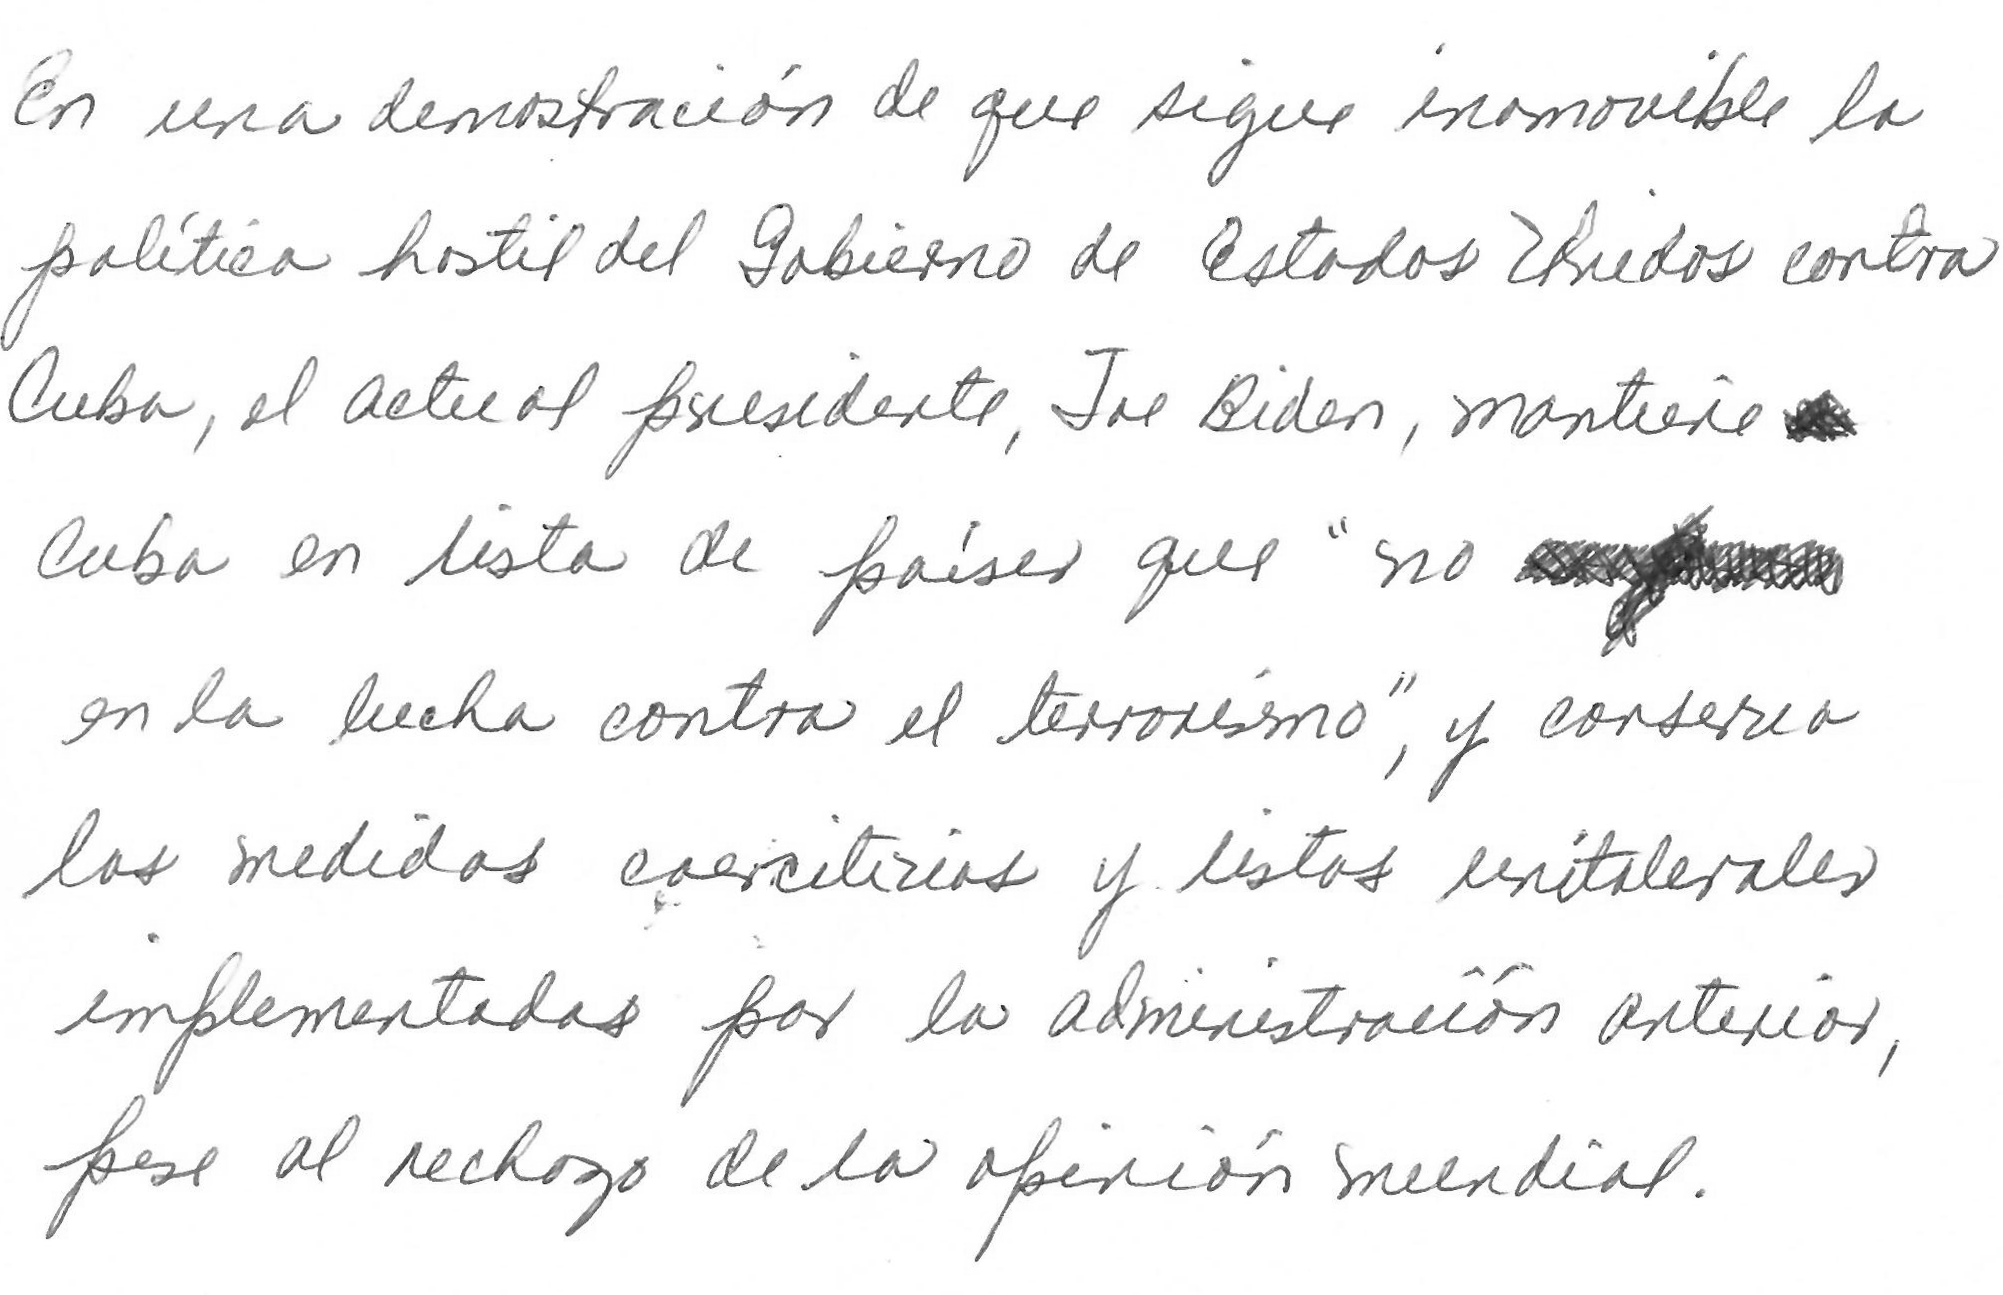 En una demostración de que sigue inamovible la
política hostil del Gobierno de Estados Unidos contra
Cuba, el actual presidente, Joe Biden, mantiene
Cuba en lista de países que "no
en la lucha contra el terrorismo", y conserva
las medidas coercitivas y listas unitalerales
implementadas por la administración anterior,
pese al rechazo de la opinión mundial.